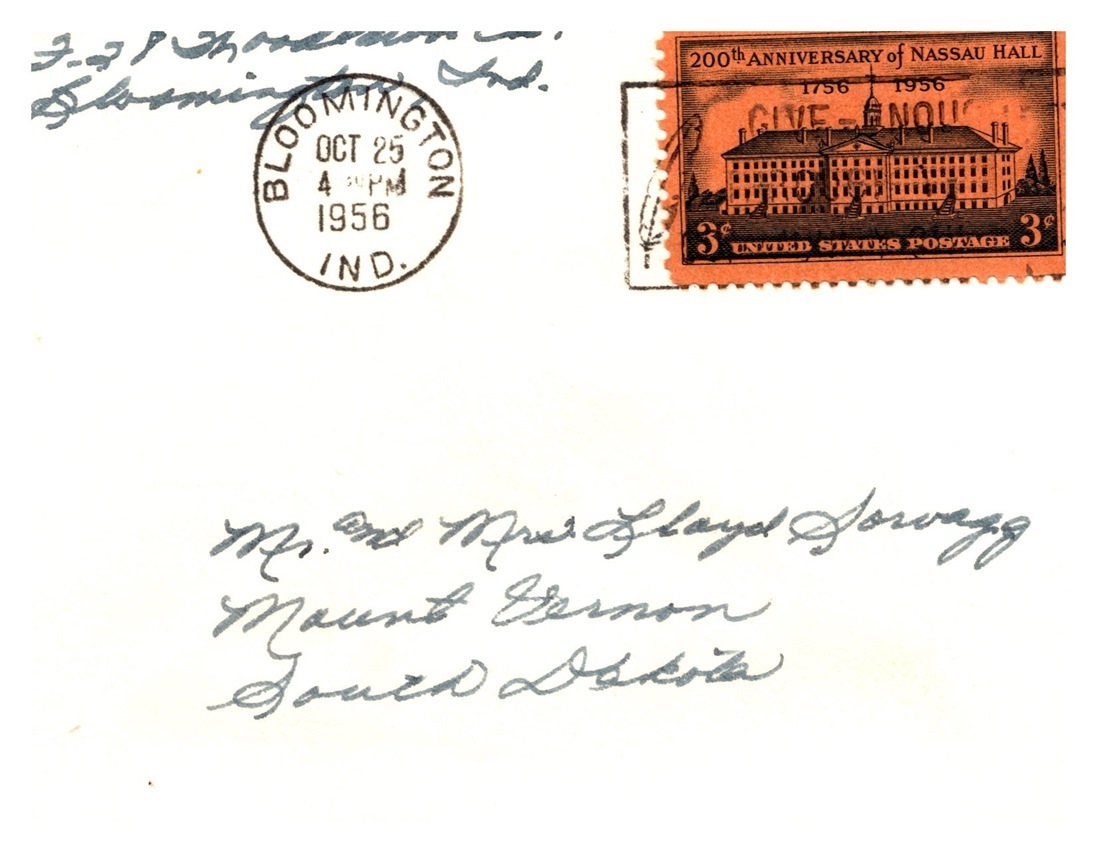 Bloomington, Ind.
BLOOMINGTON
OCT 25
4 PM
1956
IND.
200th ANNIVERSARY of NASSAU HALL
1756 1956
GIVE
3¢ UNITED STATES POSTAGE 3¢
Mr. and Mrs. Lloyd Sorvagg
Mount Vernon
South Dakota